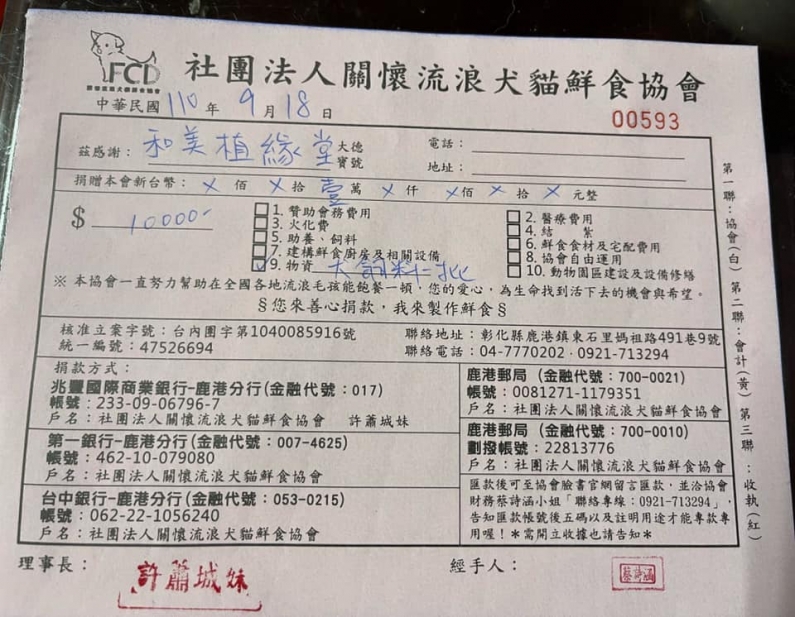 FCD
社團法人關懷流浪犬貓鮮食協會
中華民國 110 年 9 月 18 日
00593
茲感謝：和美植緣堂 大德 寶號
電話：
地址：
捐贈本會新台幣：× 佰 × 拾 壹 萬 × 仟 × 佰 × 拾 × 元整
$ 10000-
1. 贊助會務費用
2. 醫療費用
3. 火化費
4. 結 紮
5. 助養、飼料
6. 鮮食食材及宅配費用
7. 建構鮮食廚房及相關設備
8. 協會自由運用
9. 物資 犬飼料一批
10. 動物園區建設及設備修繕
※ 本協會一直努力幫助在全國各地流浪毛孩能飽餐一頓，您的愛心，為生命找到活下去的機會與希望。
§您來善心捐款，我來製作鮮食§
核准立案字號：台內團字第1040085916號
統一編號：47526694
聯絡地址：彰化縣鹿港鎮東石里媽祖路491巷9號
聯絡電話：04-7770202 · 0921-713294
捐款方式：
兆豐國際商業銀行-鹿港分行(金融代號：017)
帳號：233-09-06796-7
戶名：社團法人關懷流浪犬貓鮮食協會 許蕭城妹
第一銀行-鹿港分行(金融代號：007-4625)
帳號：462-10-079080
戶名：社團法人關懷流浪犬貓鮮食協會
台中銀行-鹿港分行(金融代號：053-0215)
帳號：062-22-1056240
戶名：社團法人關懷流浪犬貓鮮食協會
鹿港郵局 (金融代號：700-0021)
帳號：0081271-1179351
戶名：社團法人關懷流浪犬貓鮮食協會
鹿港郵局 (金融代號：700-0010)
劃撥帳號：22813776
戶名：社團法人關懷流浪犬貓鮮食協會
匯款後可至協會臉書官網留言匯款，並洽協會
財務蔡詩涵小姐「聯絡專線：0921-713294」，
告知匯款帳號後五碼以及註明用途才能專款專
用喔！＊需開立收據也請告知＊
第一聯：協會(白) 第二聯：會計(黃) 第三聯：收執(紅)
理事長：
許蕭城妹
經手人：
蔡詩涵